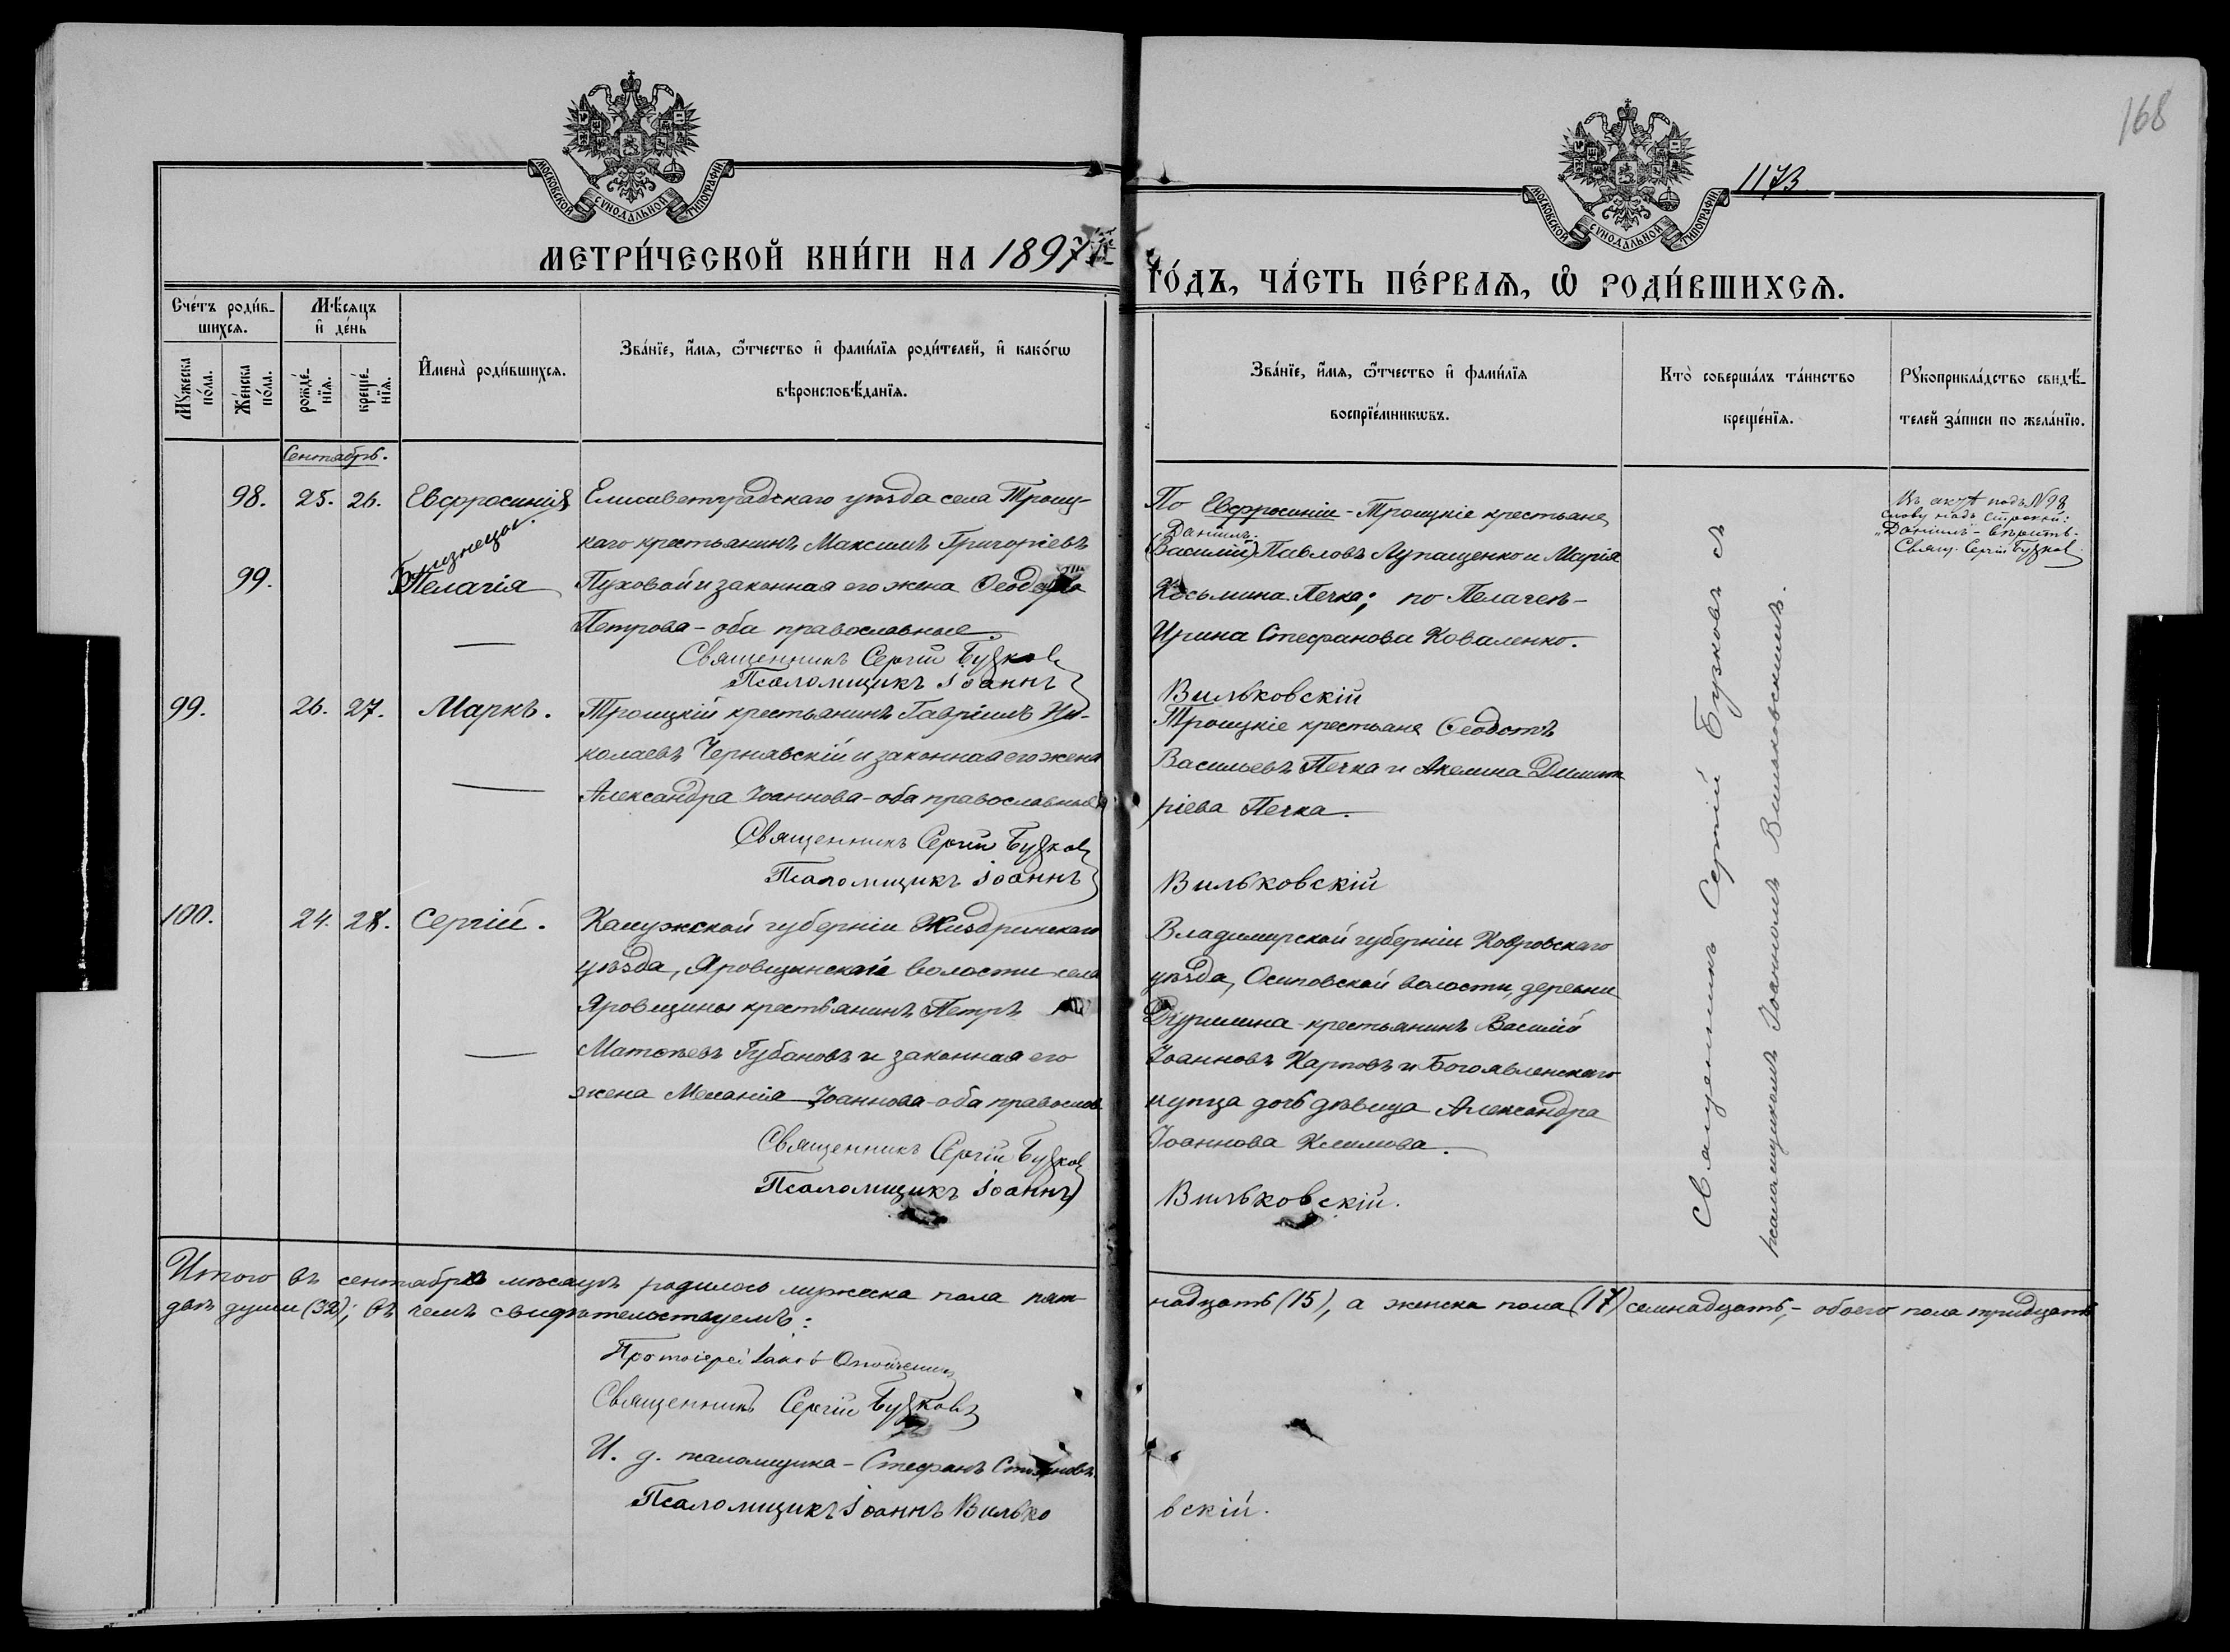 168
1173
МОСКОВСКОЙ СѴНОДАЛЬНОЙ ТИПОГРАФІИ
МОСКОВСКОЙ СѴНОДАЛЬНОЙ ТИПОГРАФІИ
МЕТРИ́ЧЕСКОЙ КНИ́ГИ НА 1897
ГО́ДЪ, ЧА́СТЬ ПЕ́РВАЯ, Ѡ РОДИ́ВШИХСЯ.
Сче́тъ роди́вшихся.
Мꙋ́жеска по́ла.
Же́нска по́ла.
Мѣ́сяцъ и де́нь
рожде́нїя.
креще́нїя.
Имена̀ роди́вшихся.
Зва́нїе, и́мя, ѻ҆́тчество и фами́лїя роди́телей, и како́гѡ
вѣроисповѣ́данїя.
Зва́нїе, и́мя, ѻ҆́тчество и фами́лїя
воспрїе́мникѡвъ.
Кто̀ соверша́лъ та́инство
креще́нїя.
Рꙋкоприкла́дство свидѣ́-
телей за́писи по жела́нїю.
Сентябрь.
98. 25. 26. Евфросинія
Близнецы.
99. Пелагія
Елисаветградскаго уѣзда села Троиц-
каго крестьянинъ Максимъ Григоріевъ
Пуховой и законная его жена Ѳеодора
Петрова - оба православные.
Священникъ Сергій Бузковъ
Псаломщикъ Іоаннъ
По Евфросиніи - Троицкіе крестьяне
Даніилъ
(Василій) Павловъ Лупащенко и Марія
Косьмина Печка; по Пелагеѣ -
Ирина Стефанова Коваленко.
Вильковскій
Въ актѣ подъ №98
слову надъ строкой:
"Даніилъ" - вѣрить.
Свящ. Сергій Бузковъ
99. 26. 27. Маркъ.
Троицкій крестьянинъ Гавріилъ Ни-
колаевъ Чернявскій и законная его жена
Александра Іоаннова - оба православные
Священникъ Сергій Бузковъ
Псаломщикъ Іоаннъ
Троицкіе крестьяне Ѳеодотъ
Васильевъ Печка и Акелина Димит
ріева Печка.
Вильковскій
100. 24. 28. Сергій.
Калужской губерніи Жиздринскаго
уѣзда, Яровщинской волости села
Яровщины крестьянинъ Петръ
Матѳѣевъ Губановъ и законная его
жена Меланія Іоаннова - оба православ
Священникъ Сергій Бузковъ
Псаломщикъ Іоаннъ
Владимирской губерніи Ковровскаго
уѣзда, Осиповской волости, деревни
крестьянинъ Василій
Іоанновъ Карповъ и Богоявленскаго
купца дочь дѣвица Александра
Іоаннова Климова.
Вильковскій.
Священникъ Сергій Бузковъ съ
псаломщикомъ Іоанномъ Вильковскимъ.
Итого въ сентябрѣ мѣсяцѣ родилось мужеска пола пят-
надцать (15), а женска пола (17) семнадцать, - обоего пола тридцать
двѣ души (32); въ чемъ свидѣтельствуемъ:
Протоіерей Іаковъ
Священникъ Сергій Бузковъ
И. д. псаломщика - Стефанъ
Псаломщикъ Іоаннъ Вилько
вскій.